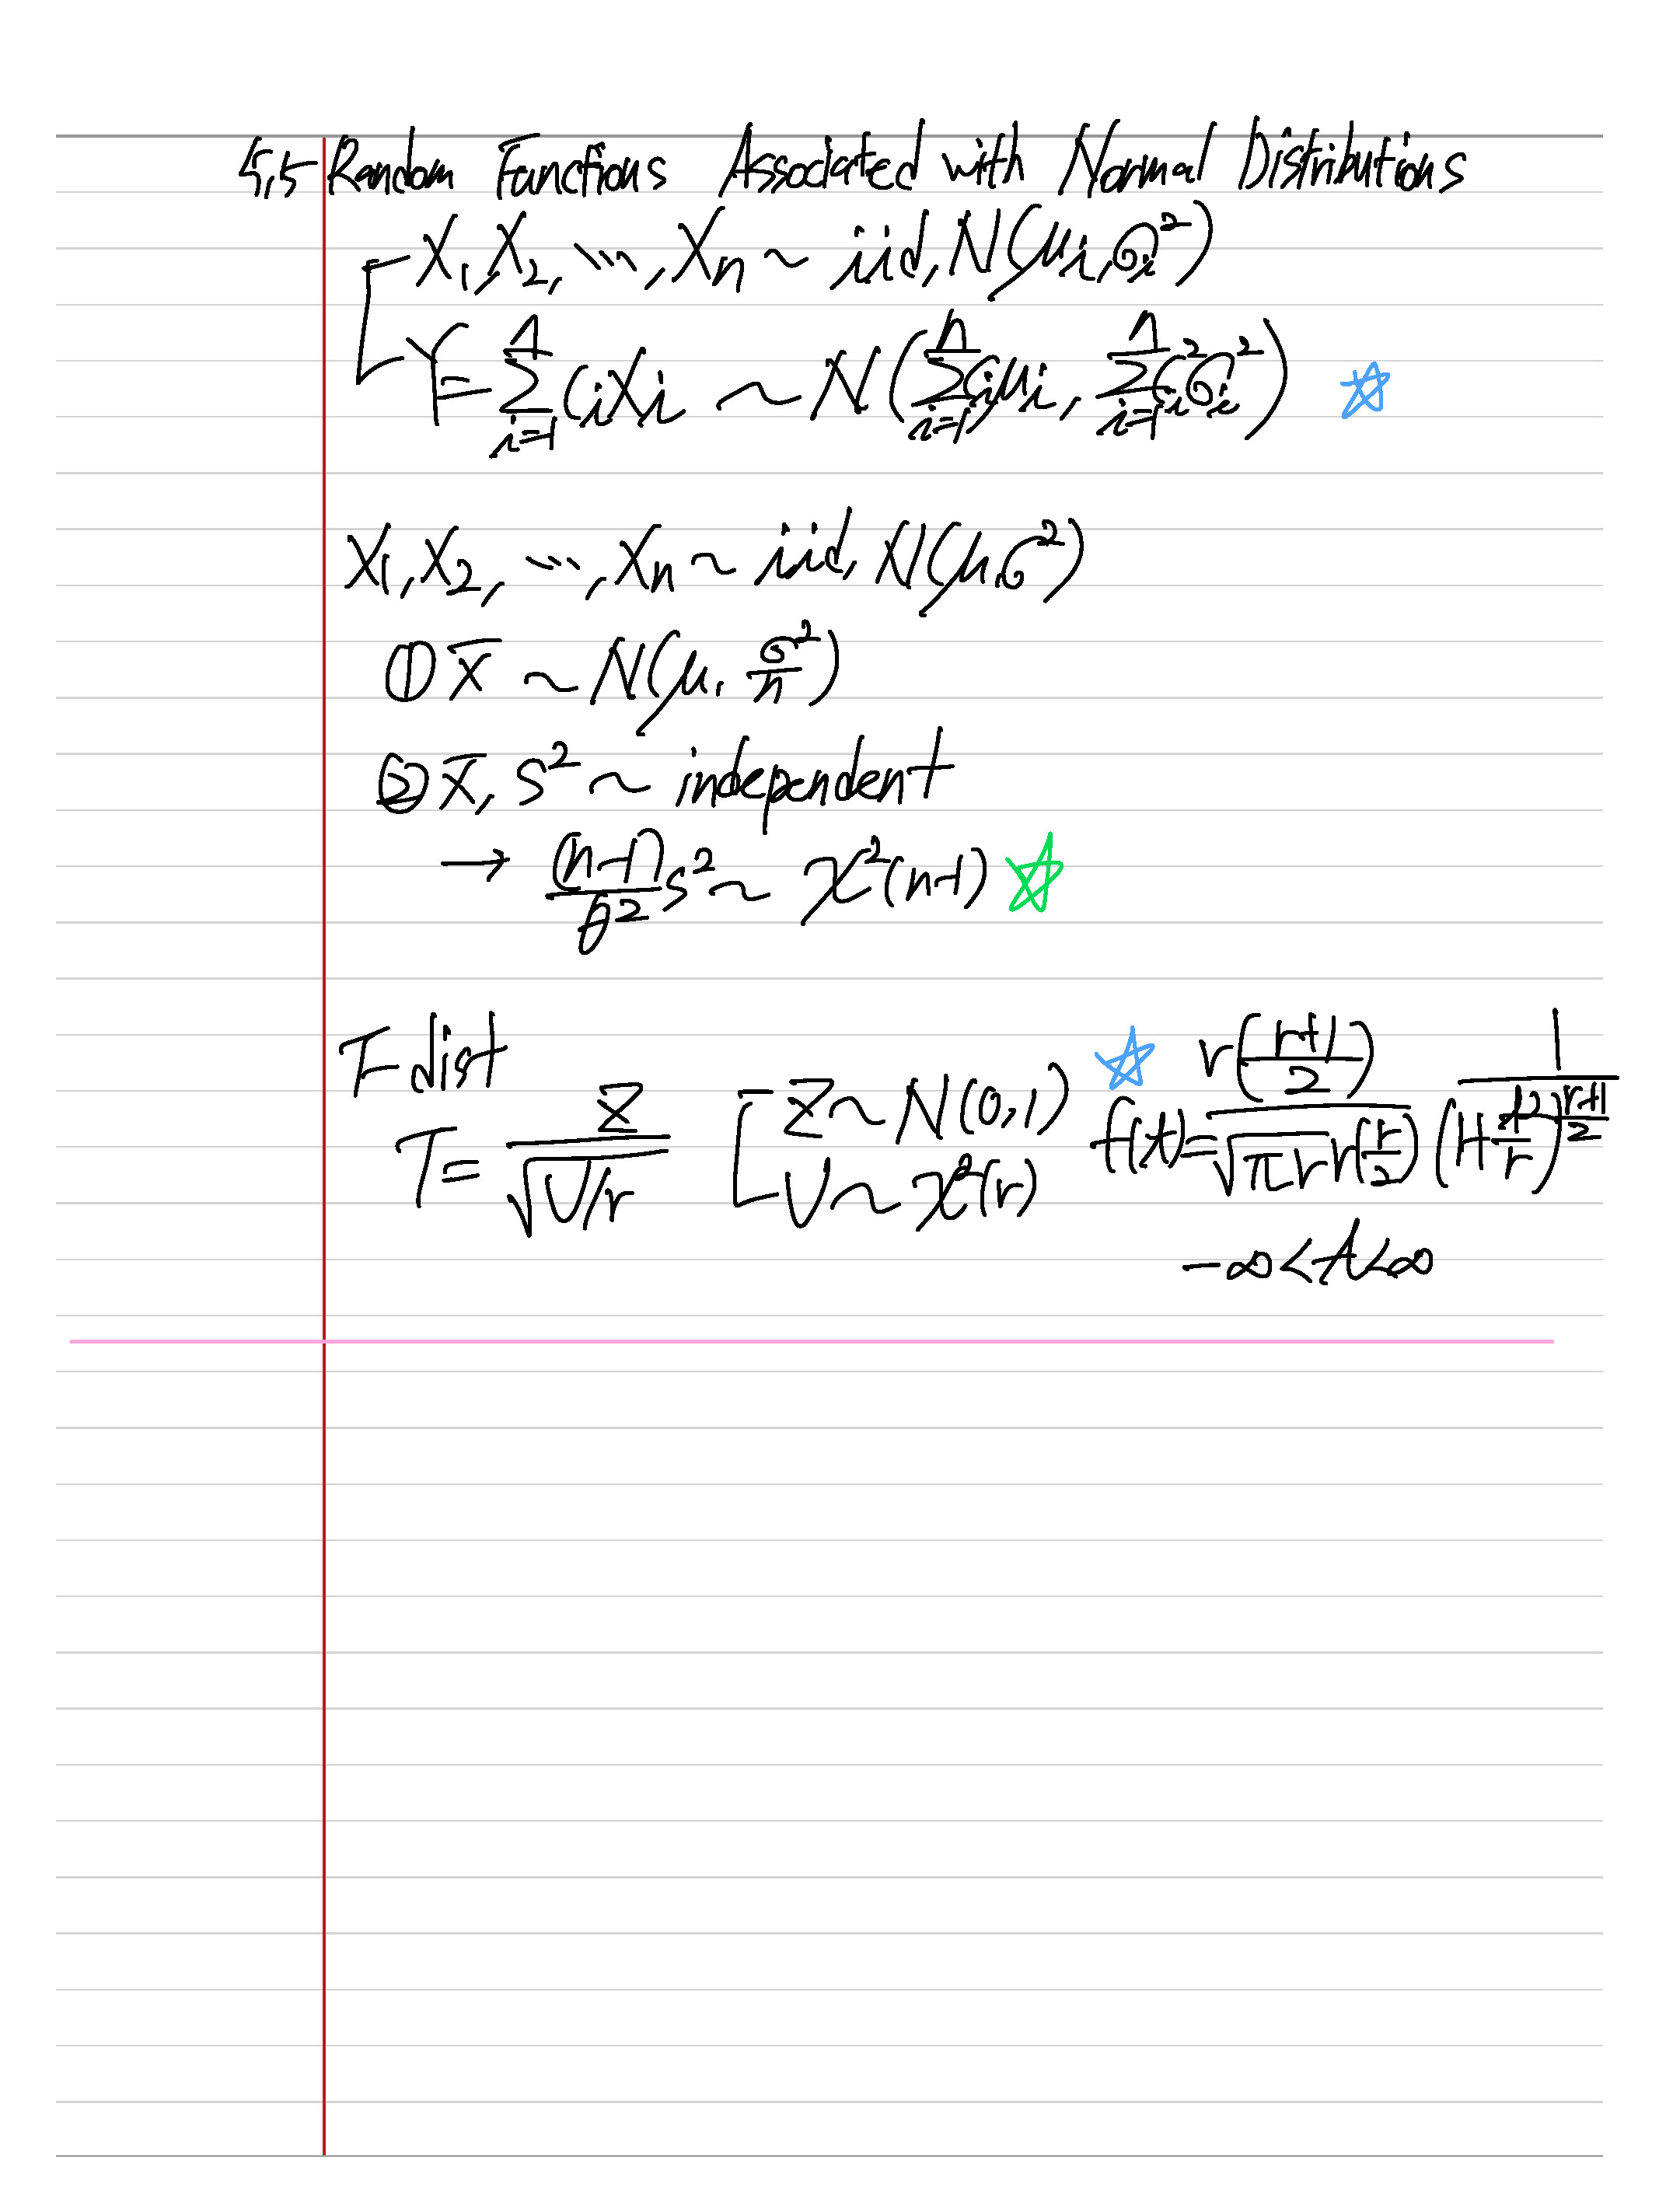 5.5 Random Functions Associated with Normal Distributions
X₁, X₂, ⋯, Xₙ ~ iid, N(μᵢ, σᵢ²)
Y = Σᵢ₌₁ⁿ CᵢXᵢ ~ N(Σᵢ₌₁ⁿ Cᵢμᵢ, Σᵢ₌₁ⁿ Cᵢ²σᵢ²) ☆
X₁, X₂, ⋯, Xₙ ~ iid, N(μ, σ²)
① X̄ ~ N(μ, σ²/n)
② X̄, S² ~ independent
→ (n-1)/σ² S² ~ χ²(n-1) ☆
T dist
T = Z/√(U/r) [ Z ~ N(0,1) U ~ χ²(r) ☆ f(t) = Γ((r+1)/2)/(√(πr) Γ(r/2)) 1/(1+t²/r)^((r+1)/2)
-∞ < t < ∞